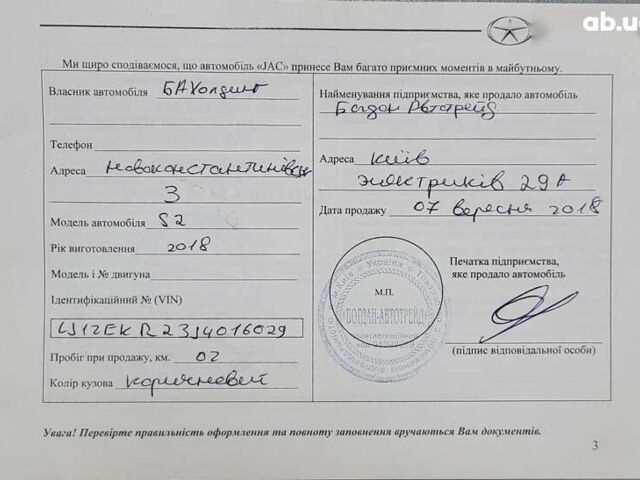 ab.u
Ми щиро сподіваємося, що автомобіль «JAC» принесе Вам багато приємних моментів в майбутньому.
Власник автомобіля БАХолдинг
Телефон
Адреса Новоконстантинівська
3
Модель автомобіля S2
Рік виготовлення 2018
Модель і № двигуна
Ідентифікаційний № (VIN)
LJ12EKR23J4016029
Пробіг при продажу, км. 02
Колір кузова коричневий
Найменування підприємства, яке продало автомобіль
Богдан Автотрейд
Адреса Київ
Электриків 29А
Дата продажу 07 вересня 2018
Печатка підприємства,
яке продало автомобіль
М.П.
БОГДАН-АВТОТРЕЙД
(підпис відповідальної особи)
Увага! Перевірте правильність оформлення та повноту заповнення вручаються Вам документів.
3